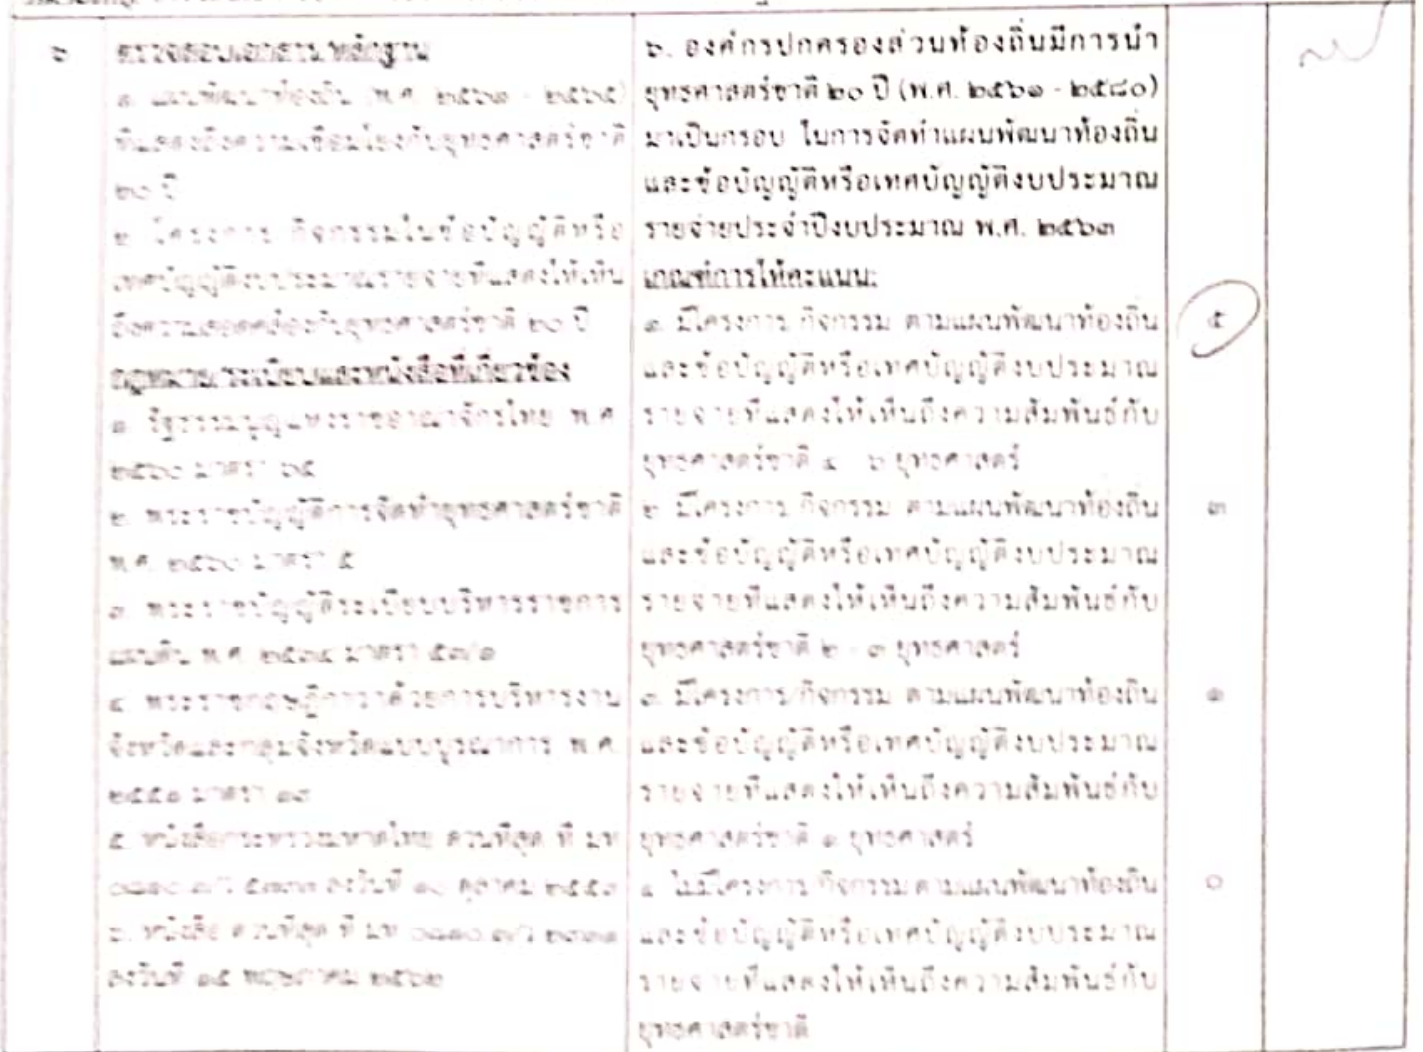 ๖
ตรวจสอบเอกสาร/หลักฐาน
๑. แผนพัฒนาท้องถิ่น (พ.ศ. ๒๕๖๑ - ๒๕๖๕)
ที่แสดงถึงความเชื่อมโยงกับยุทธศาสตร์ชาติ
๒๐ ปี
๒. โครงการ/กิจกรรมในข้อบัญญัติหรือ
เทศบัญญัติงบประมาณรายจ่ายที่แสดงให้เห็น
ถึงความสอดคล้องกับยุทธศาสตร์ชาติ ๒๐ ปี
กฎหมาย ระเบียบและหนังสือที่เกี่ยวข้อง
๑. รัฐธรรมนูญแห่งราชอาณาจักรไทย พ.ศ.
๒๕๖๐ มาตรา ๖๕
๒. พระราชบัญญัติการจัดทำยุทธศาสตร์ชาติ
พ.ศ. ๒๕๖๐ มาตรา ๕
๓. พระราชบัญญัติระเบียบบริหารราชการ
แผ่นดิน พ.ศ. ๒๕๓๔ มาตรา ๕๓/๑
๔. พระราชกฤษฎีกาว่าด้วยการบริหารงาน
จังหวัดและกลุ่มจังหวัดแบบบูรณาการ พ.ศ.
๒๕๕๑ มาตรา
๕. หนังสือกระทรวงมหาดไทย ด่วนที่สุด ที่ มท
ลงวันที่ ๑๐ ตุลาคม ๒๕๕๓
๖. หนังสือ ด่วนที่สุด ที่ มท
ลงวันที่ ๑๕ พฤษภาคม ๒๕๖๒
๖. องค์กรปกครองส่วนท้องถิ่นมีการนำ
ยุทธศาสตร์ชาติ ๒๐ ปี (พ.ศ. ๒๕๖๑ - ๒๕๘๐)
มาเป็นกรอบ ในการจัดทำแผนพัฒนาท้องถิ่น
และข้อบัญญัติหรือเทศบัญญัติงบประมาณ
รายจ่ายประจำปีงบประมาณ พ.ศ. ๒๕๖๓
เกณฑ์การให้คะแนน:
๑. มีโครงการ/กิจกรรม ตามแผนพัฒนาท้องถิ่น
และข้อบัญญัติหรือเทศบัญญัติงบประมาณ
รายจ่ายที่แสดงให้เห็นถึงความสัมพันธ์กับ
ยุทธศาสตร์ชาติ ๔ - ๖ ยุทธศาสตร์
๕
๒. มีโครงการ/กิจกรรม ตามแผนพัฒนาท้องถิ่น
และข้อบัญญัติหรือเทศบัญญัติงบประมาณ
รายจ่ายที่แสดงให้เห็นถึงความสัมพันธ์กับ
ยุทธศาสตร์ชาติ ๒ - ๓ ยุทธศาสตร์
๓
๓. มีโครงการ/กิจกรรม ตามแผนพัฒนาท้องถิ่น
และข้อบัญญัติหรือเทศบัญญัติงบประมาณ
รายจ่ายที่แสดงให้เห็นถึงความสัมพันธ์กับ
ยุทธศาสตร์ชาติ ๑ ยุทธศาสตร์
๑
๔. ไม่มีโครงการ/กิจกรรม ตามแผนพัฒนาท้องถิ่น
และข้อบัญญัติหรือเทศบัญญัติงบประมาณ
รายจ่ายที่แสดงให้เห็นถึงความสัมพันธ์กับ
ยุทธศาสตร์ชาติ
๐